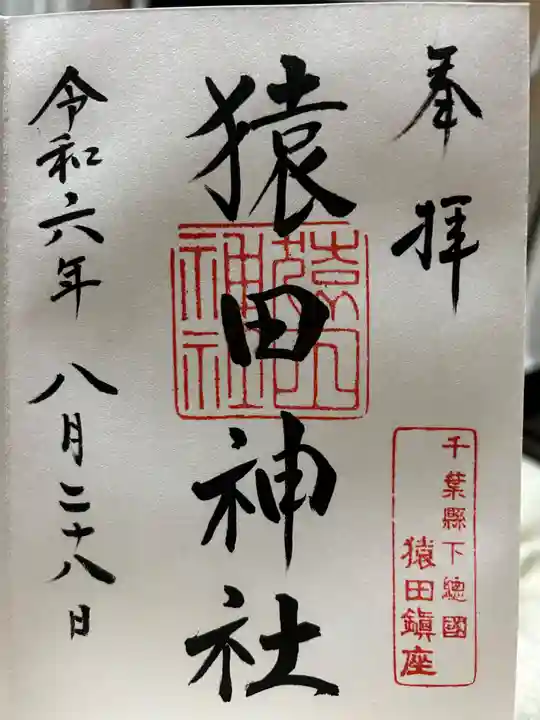 奉拝
千葉縣下總國
猿田鎭座
猿田神社
猿田神社
令和六年 八月二十八日